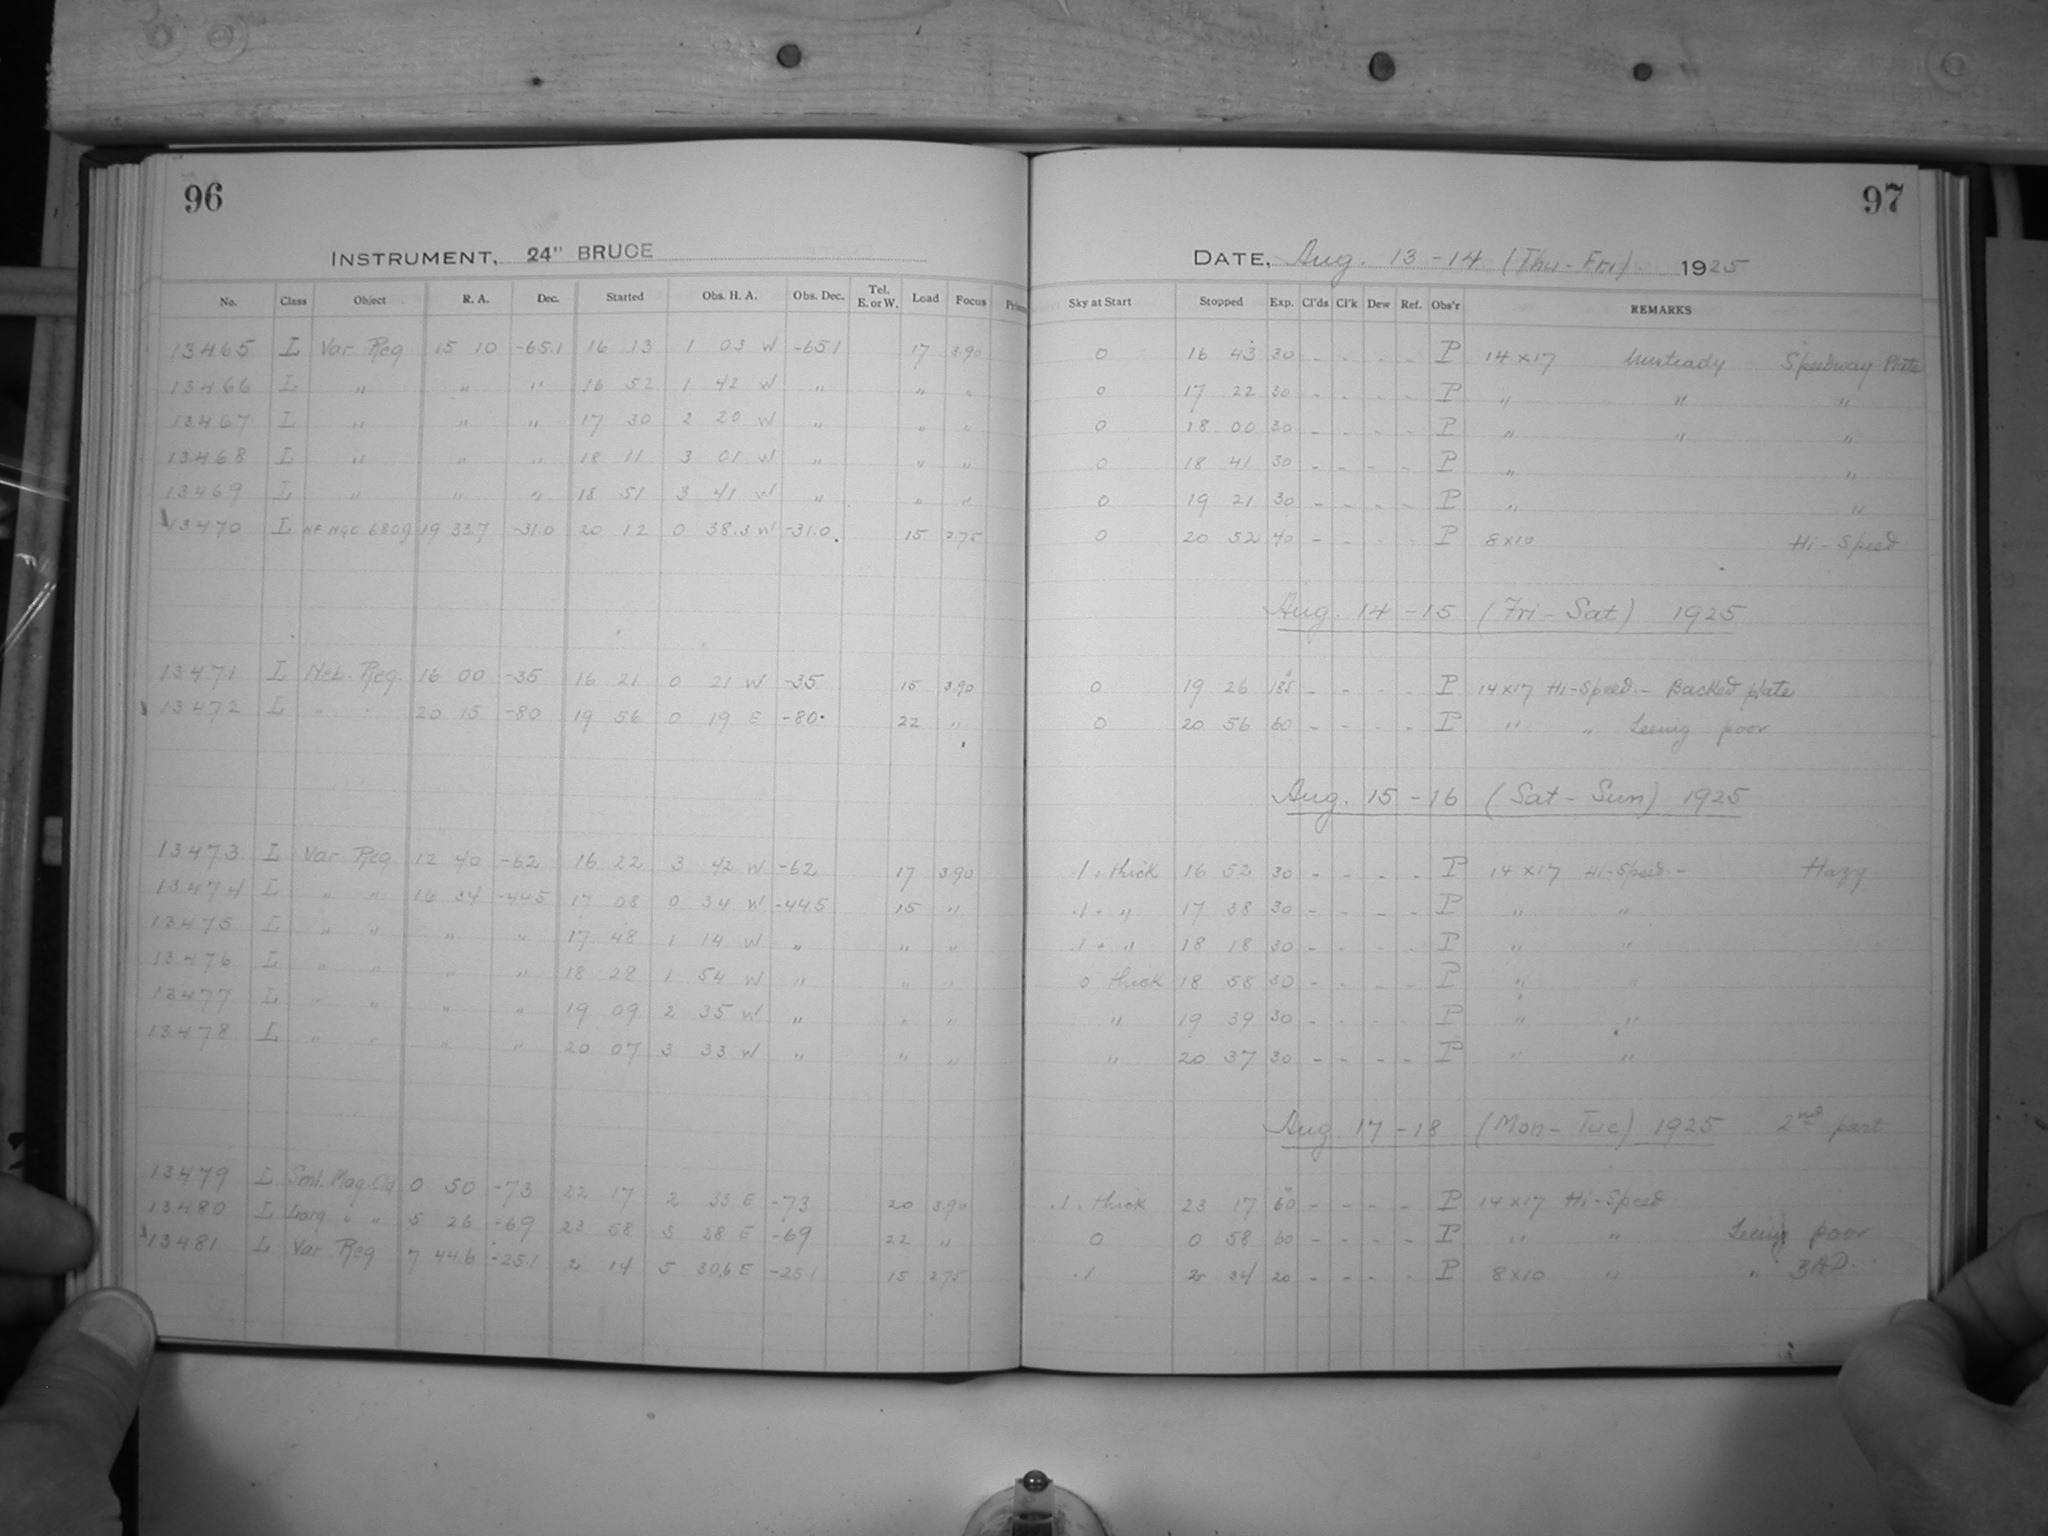 96
INSTRUMENT, 24" BRUCE
No. Class Object R. A. Dec. Started Obs. H. A. Obs. Dec. Tel. E. or W. Load Focus
13465 L Var Reg 15 10 -65.1 16 13 1 03 W -65.1 17 3.90
13466 L " " " 16 52 1 42 W " " "
13467 L " " " 17 30 2 20 W " " "
13468 L " " " 18 11 3 01 W " " "
13469 L " " " 18 51 3 41 W " " "
13470 L NF NGC 6809 19 33.7 -31.0 20 12 0 38.3 W -31.0 15 2.75
13471 L Neb. Reg. 16 00 -35 16 21 0 21 W -35 15 3.90
13472 L " " 20 15 -80 19 56 0 19 E -80 22 "
13473 L Var Reg 12 40 -62 16 22 3 42 W -62 17 3.90
13474 L " " 16 34 -44.5 17 08 0 34 W -44.5 15 "
13475 L " " " " 17 48 1 14 W " " "
13476 L " " " " 18 28 1 54 W " " "
13477 L " " " " 19 09 2 35 W " " "
13478 L " " " " 20 07 3 33 W " " "
13479 L Sml. Mag. Cld 0 50 -73 22 17 2 33 E -73 20 3.90
13480 L Larg " " 5 26 -69 23 58 5 28 E -69 22 "
13481 L Var Reg 7 44.6 -25.1 2 14 5 30.6 E -25.1 15 2.75
97
DATE, Aug. 13-14 (Thu-Fri) 1925
Sky at Start Stopped Exp. Cl'ds Cl'k Dew Ref. Obs'r REMARKS
0 16 43 30 - - - - P 14x17 Unsteady Speedway Plate
0 17 22 30 - - - - P " " "
0 18 00 30 - - - - P " " "
0 18 41 30 - - - - P " "
0 19 21 30 - - - - P " "
0 20 52 40 - - - - P 8x10 Hi-Speed
Aug. 14-15 (Fri-Sat) 1925
0 19 26 185 - - - - P 14x17 Hi-Speed - Backed plate
0 20 56 60 - - - - P " " Seeing poor
Aug. 15-16 (Sat-Sun) 1925
.1, thick 16 52 30 - - - - P 14x17 Hi-Speed - Hazy
.1 + " 17 38 30 - - - - P " "
.1 + " 18 18 30 - - - - P " "
0 thick 18 58 30 - - - - P " "
" 19 39 30 - - - - P " "
" 20 37 30 - - - - P " "
Aug. 17-18 (Mon-Tue) 1925 2nd part
.1, thick 23 17 60 - - - - P 14x17 Hi-Speed
0 0 58 60 - - - - P " " Seeing poor
.1 2 34 20 - - - - P 8x10 " " BAD.